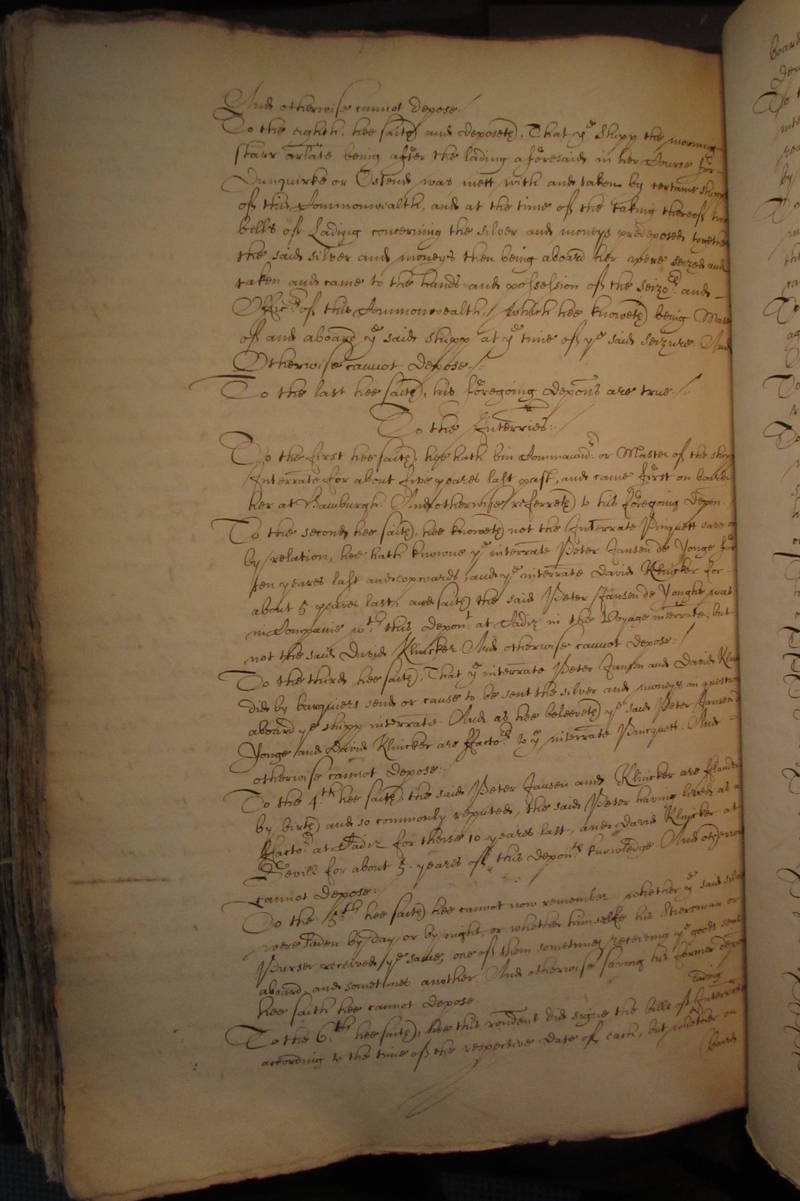 And otherwise cannot depose./
To the eighth, hee saith and deposeth, That ye shipp the morning
starr arlate being after the lading aforesaid in her Course for
Dunquirke or Ostend was mett with and taken by certaine shipps
of this Commonwealth, and at the time of the taking thereof the
bills of Lading concerning the silver and moneys predeposed together
the said silver and moneys then being aboard her were seized and
taken and came to the hands and possession of the seizers and
Officrs of this Commonwealth, which hee knoweth being Master
of and aboard ye said shipp at ye time of ye said seizure. And
Otherwise cannot depose./
To the last hee saith, his foregoing deponns are true./
To the Interries:
To the first hee saith, hee hath bin Commandr or Master of the shipp
Interrate for about five yeares last past, and came first on board
her at Hamburgh. And otherwise referreth to his foregoing depon
To the second hee saith, hee knoweth not the Interrate Paquett save
by relation, hee hath knowne ye interrate Peter Jansen de Jonge for
ten yeares last and upwards and ye interrate David Klincker for
about 5 yeares last, and saith the said Peter Jansen de Jonghe was
in Companie wth this deponent at Cadiz in the Voyage interrate, but
not the said David Klincker. And otherwise cannot depose./
To the third hee saith, That ye interrate Peter Janson and David Klin
did by barques send or cause to be sent the silver and moneys in question
aboard ye shipp interrate. And as hee beleeveth ye said Peter Jansen
Jonge and David Klincker are ffactors to ye interrate Paquett. And
otherwise cannot depose:
To the 4th hee saith the said Peter Jansen and Klincker are fflandr
by birth and so commonly reputed, the said Peter having lived as a
ffactor at Cadiz for theise 10 yeares last, and David Klincker at
Sevill for about 5 yeares of this deponts knowledge And otherwise
cannot depose:
To the 5th hee saith hee cannot now remember whether ye said silver
were laden by day or by night, or whether himselfe his Steersman or
Purser received ye same, one of them sometimes receiving ye goods sent
aboard and sometimes another. And otherwise saving his former depon
hee saith hee cannot depose.
To the 6th hee saith, hee this rendent did signe the bills of lading Interrate
according to the time of the respective date of each, but whether on
board